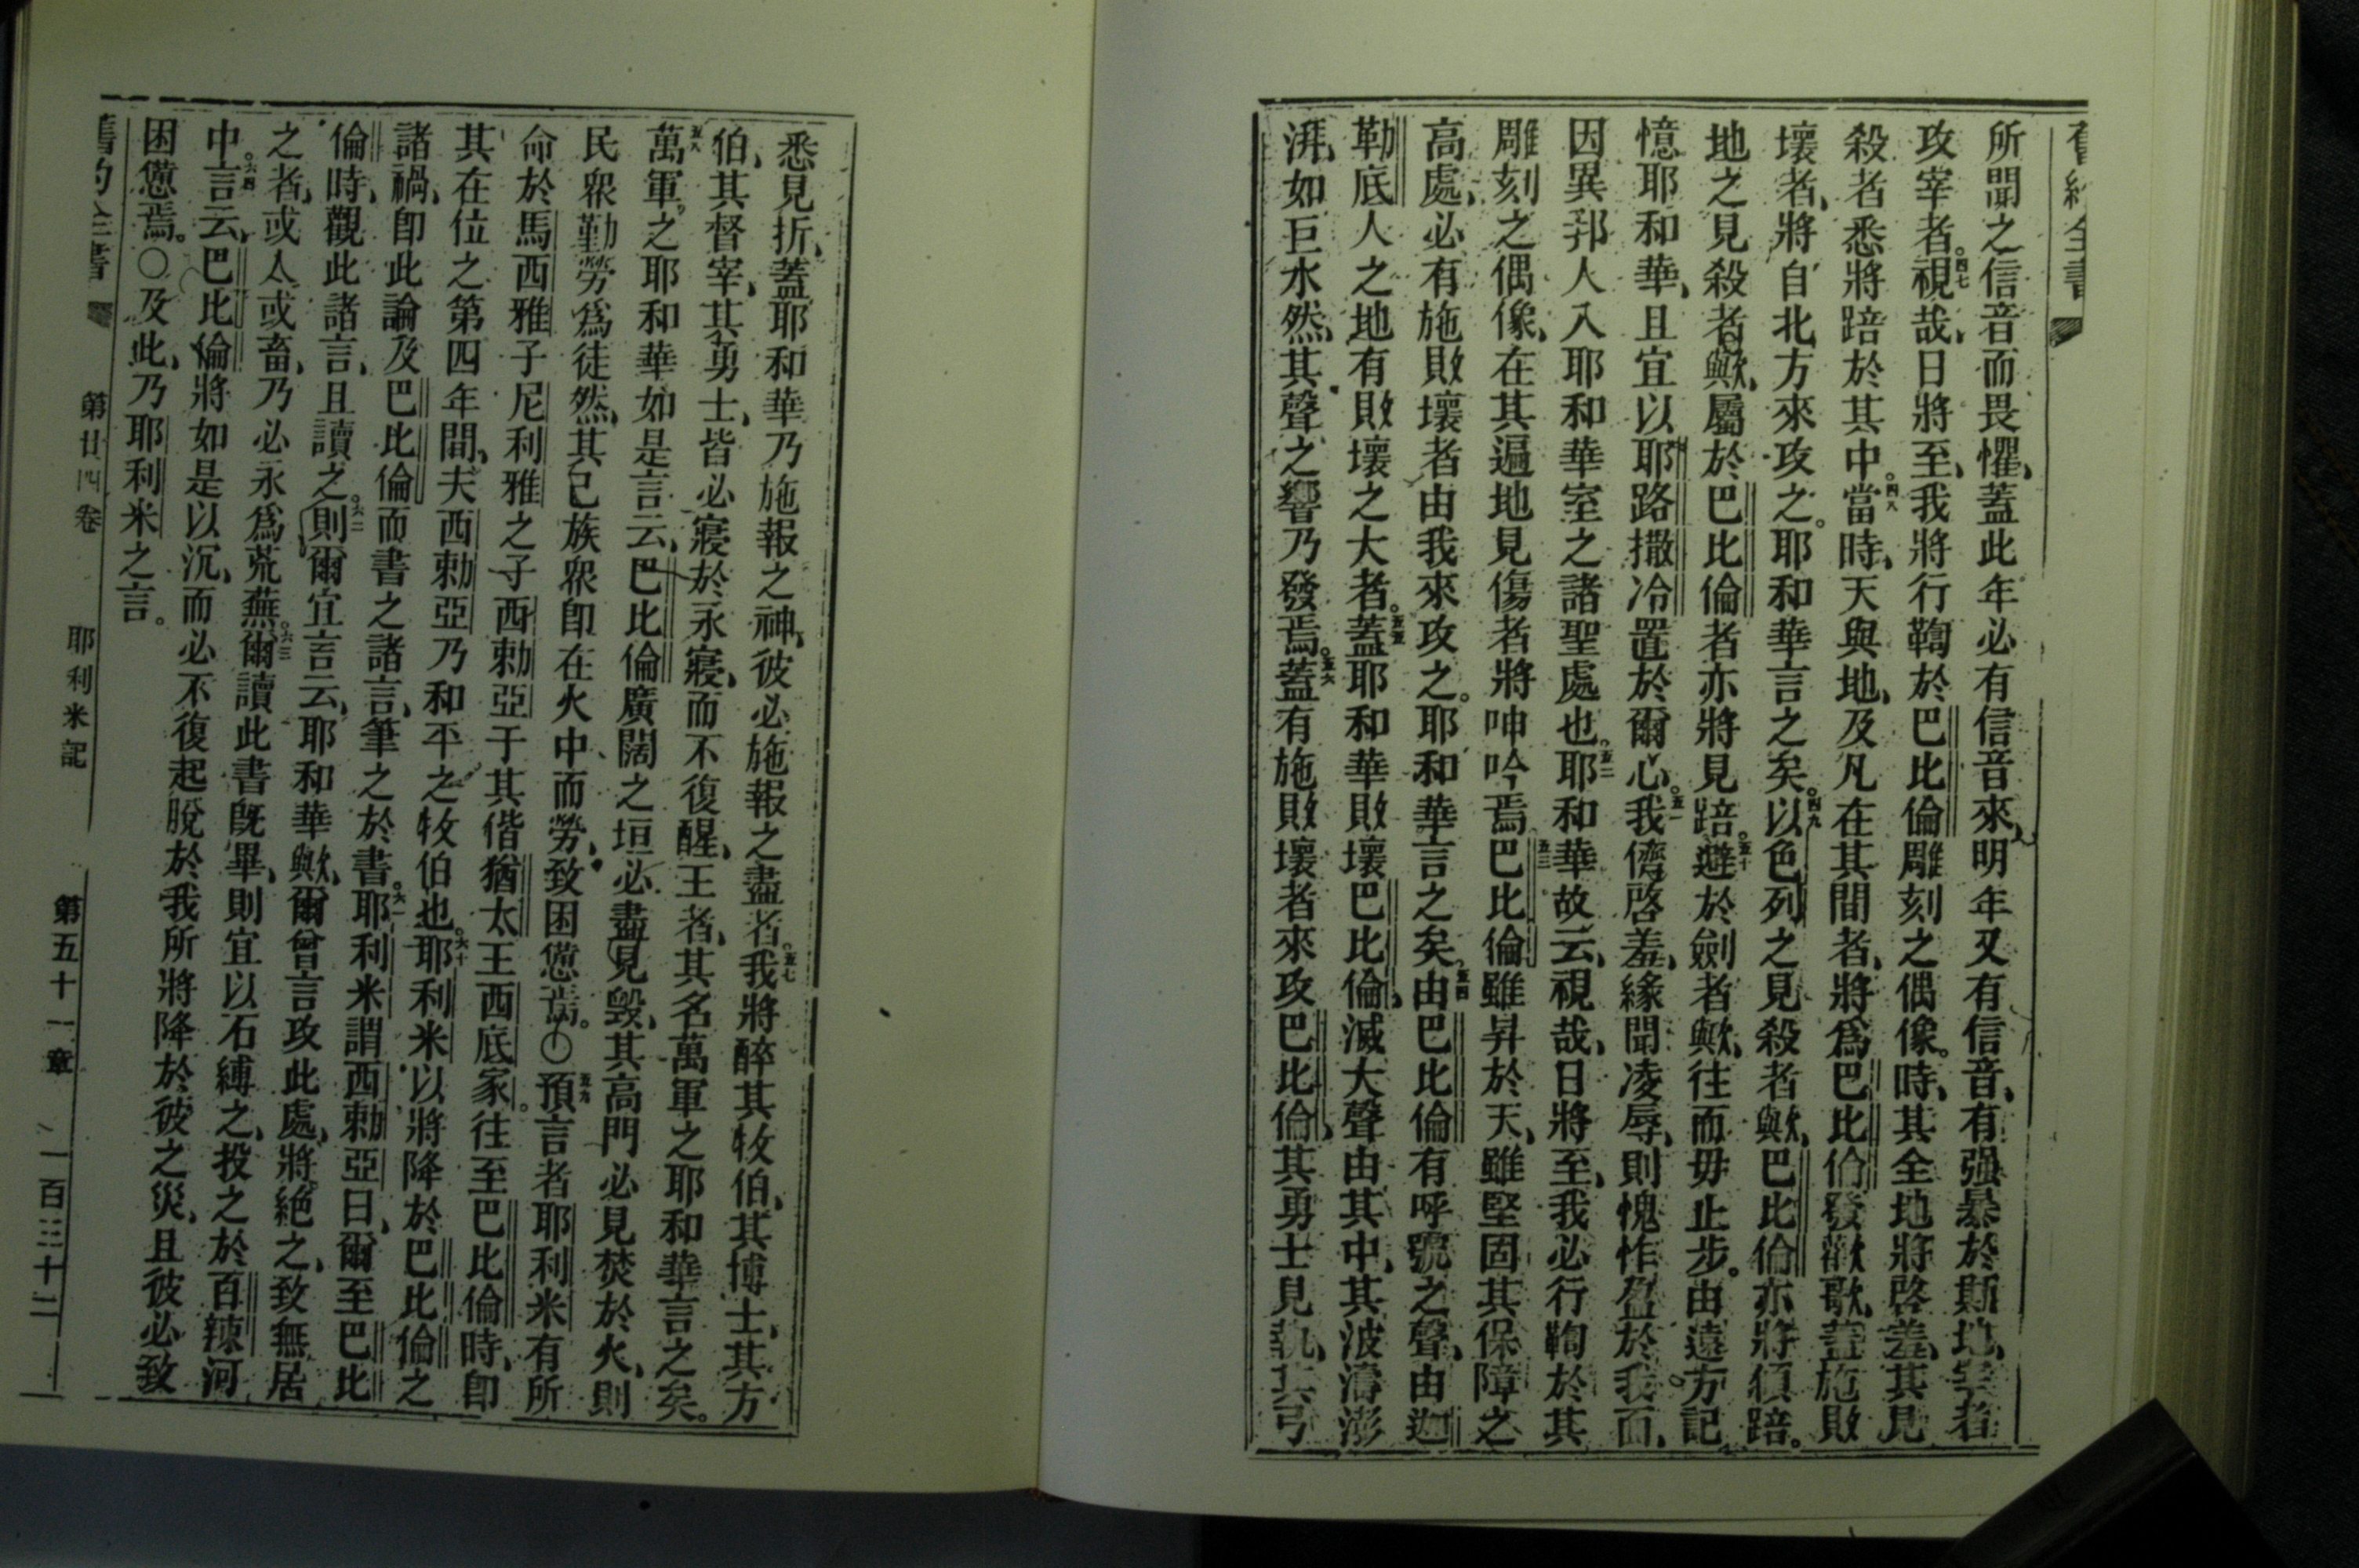 舊約全書
所聞之信音而畏懼、蓋此年必有信音來、明年又有信音、有强暴於斯地、宰者
攻宰者。四七視哉、日將至、我將行鞫於巴比倫雕刻之偶像。時、其全地將啓羞、其見
殺者悉將踣於其中。四八當時、天與地、及凡在其間者、將爲巴比倫發歡歌、蓋施敗
壞者、將自北方來攻之。耶和華言之矣。四九以色列之見殺者歟、巴比倫亦將傾踣。
地之見殺者歟、屬於巴比倫者亦將見踣。五十避於劍者歟、往而毋止步。由遠方記
憶耶和華、且宜以耶路撒冷置於爾心。五一我儕啓羞、緣聞凌辱、則愧怍盈於我面、
因異邦人入耶和華室之諸聖處也。五二耶和華故云、視哉、日將至、我必行鞫於其
雕刻之偶像、在其遍地見傷者將呻吟焉。五三巴比倫雖昇於天、雖堅固其保障之
高處、必有施敗壞者由我來攻之。耶和華言之矣。五四由巴比倫有呼號之聲、由迦
勒底人之地有敗壞之大者。五五蓋耶和華敗壞巴比倫、滅大聲由其中、其波濤澎
湃、如巨水然、其聲之響乃發焉。五六蓋有施敗壞者來攻巴比倫、其勇士見執、其弓
悉見折、蓋耶和華乃施報之神、彼必施報之盡者。五七我將醉其牧伯、其博士、其方
伯、其督宰、其勇士、皆必寢於永寢、而不復醒、王者、其名萬軍之耶和華言之矣。
五八萬軍之耶和華如是言云、巴比倫廣闊之垣必盡見毀、其高門必見焚於火、則
民衆勤勞爲徒然、其己族衆卽在火中而勞、致困憊焉。〇五九預言者耶利米有所
命於馬西雅子尼利雅之子西勅亞于其偕猶太王西底家往至巴比倫時、卽
其在位之第四年間、夫西勅亞乃和平之牧伯也。六十耶利米以將降於巴比倫之
諸禍、卽此論及巴比倫而書之諸言、筆之於書。六一耶利米謂西勅亞曰、爾至巴比
倫時、觀此諸言、且讀之。六二則爾宜言云、耶和華歟、爾曾言攻此處、將絕之、致無居
之者、或人或畜、乃必永爲荒蕪。六三爾讀此書旣畢、則宜以石縛之、投之於百辣河
中。六四言云、巴比倫將如是以沉、而必不復起脫於我所將降於彼之災、且彼必致
困憊焉。〇及此、乃耶利米之言。
舊約全書 第廿四卷 耶利米記 第五十一章 一百三十二